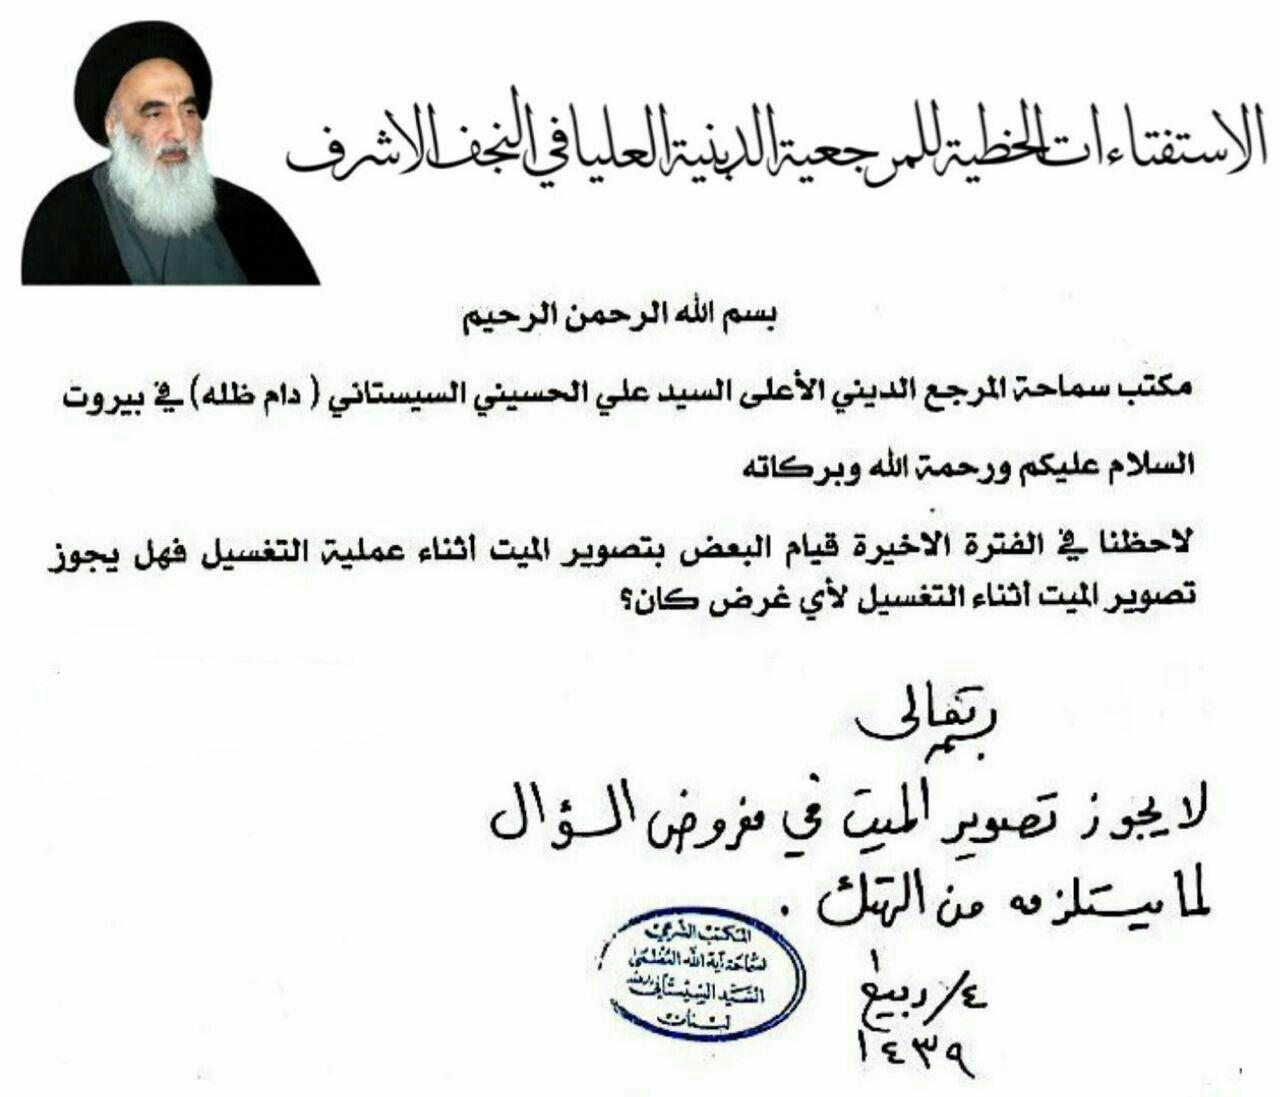 الاستفتاءات الخطية للمرجعية الدينية العليا في النجف الاشرف
بسم الله الرحمن الرحيم
مكتب سماحة المرجع الديني الأعلى السيد علي الحسيني السيستاني ( دام ظله ) في بيروت
السلام عليكم ورحمة الله وبركاته
لاحظنا في الفترة الاخيرة قيام البعض بتصوير الميت أثناء عملية التغسيل فهل يجوز
تصوير الميت أثناء التغسيل لأي غرض كان؟
بسمه تعالى
لا يجوز تصوير الميت في مفروض السؤال
لما يستلزمه من الهتك .
٤/ربيع ١
١٤٣٩
المكتب الشرعي
لسماحة آية الله العظمى
السيد السيستاني
لبنان